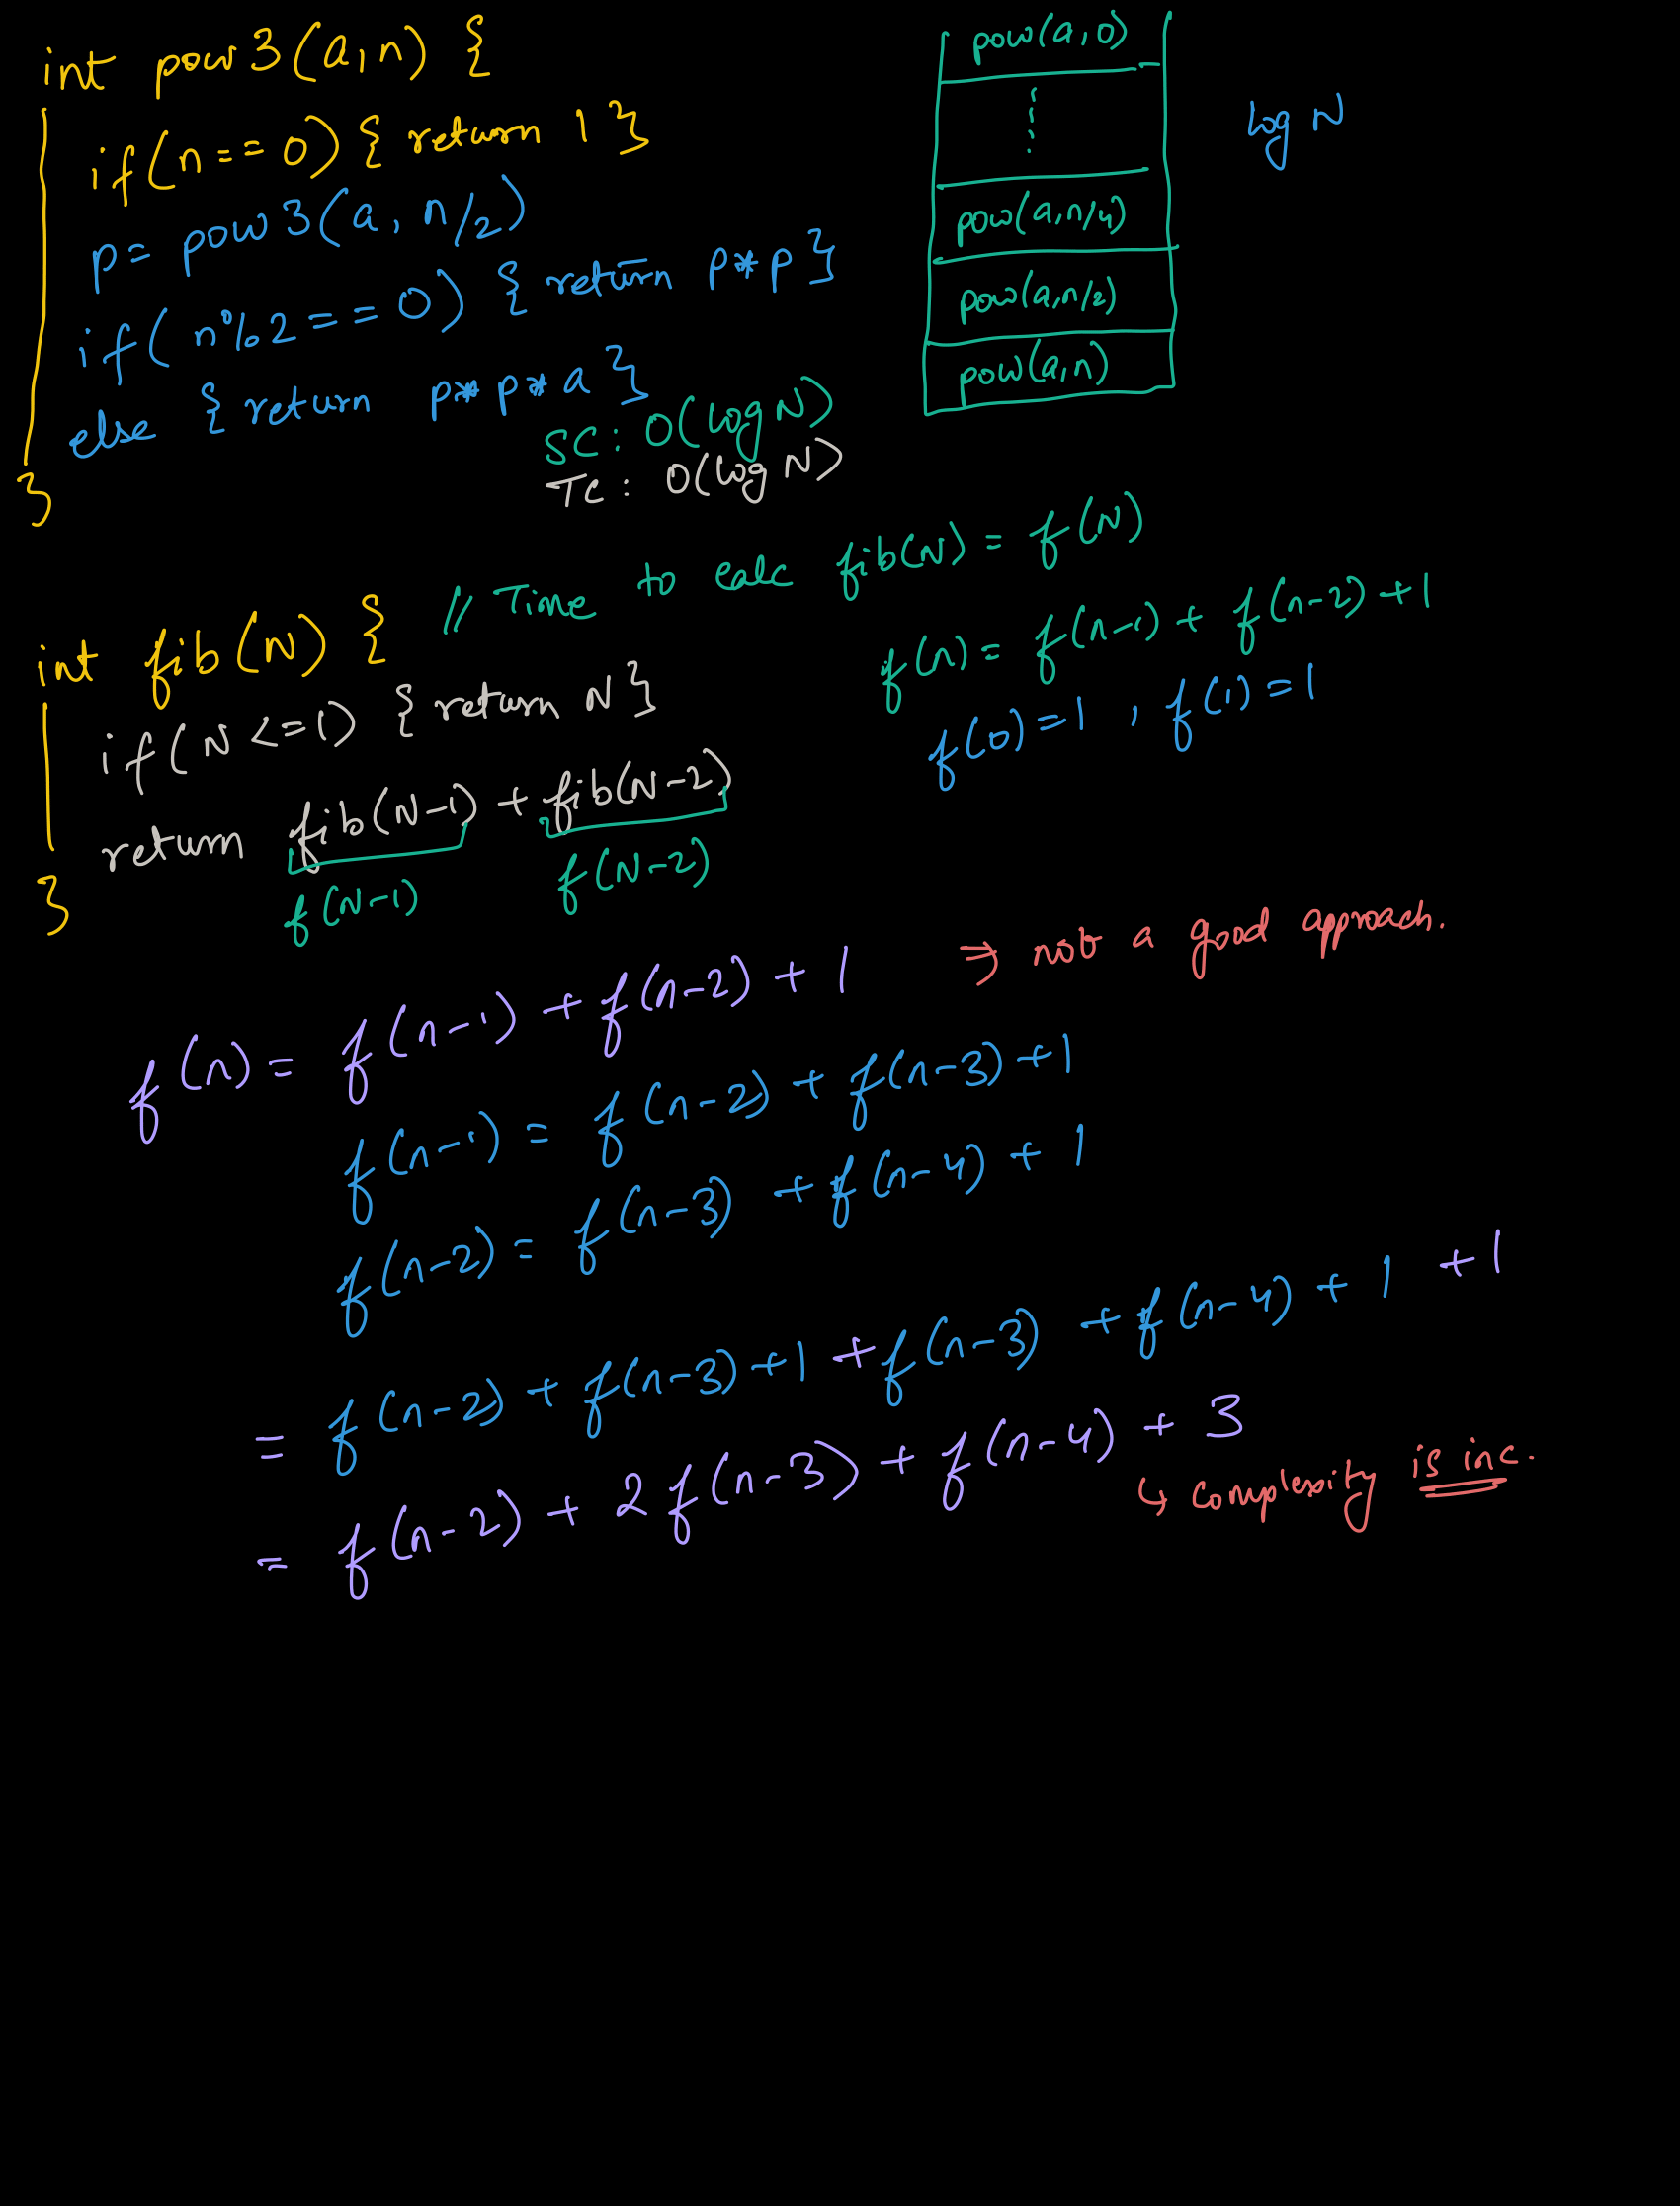 int pow3(a,n) {
if(n==0) { return 1 }
p= pow3(a, n/2)
if( n%2==0) { return p*p }
else { return p*p*a }
}
SC: O(log N)
TC: O(log N)
pow(a,0)
pow(a,n/4)
pow(a,n/2)
pow(a,n)
log N
int fib(N) { // Time to calc fib(N) = f(N)
if(N<=1) { return N }
return fib(N-1) + fib(N-2)
f(N-1) f(N-2)
}
f(n)= f(n-1)+ f(n-2)+1
f(0)=1 , f(1)=1
f(n)= f(n-1) + f(n-2) + 1 ⇒ not a good approach.
f(n-1) = f(n-2) + f(n-3)+1
f(n-2)= f(n-3) +f(n-4) + 1
= f(n-2) + f(n-3)+1 +f(n-3) +f(n-4) + 1 +1
= f(n-2) + 2f(n-3) + f(n-4) + 3
↳ complexity is inc.